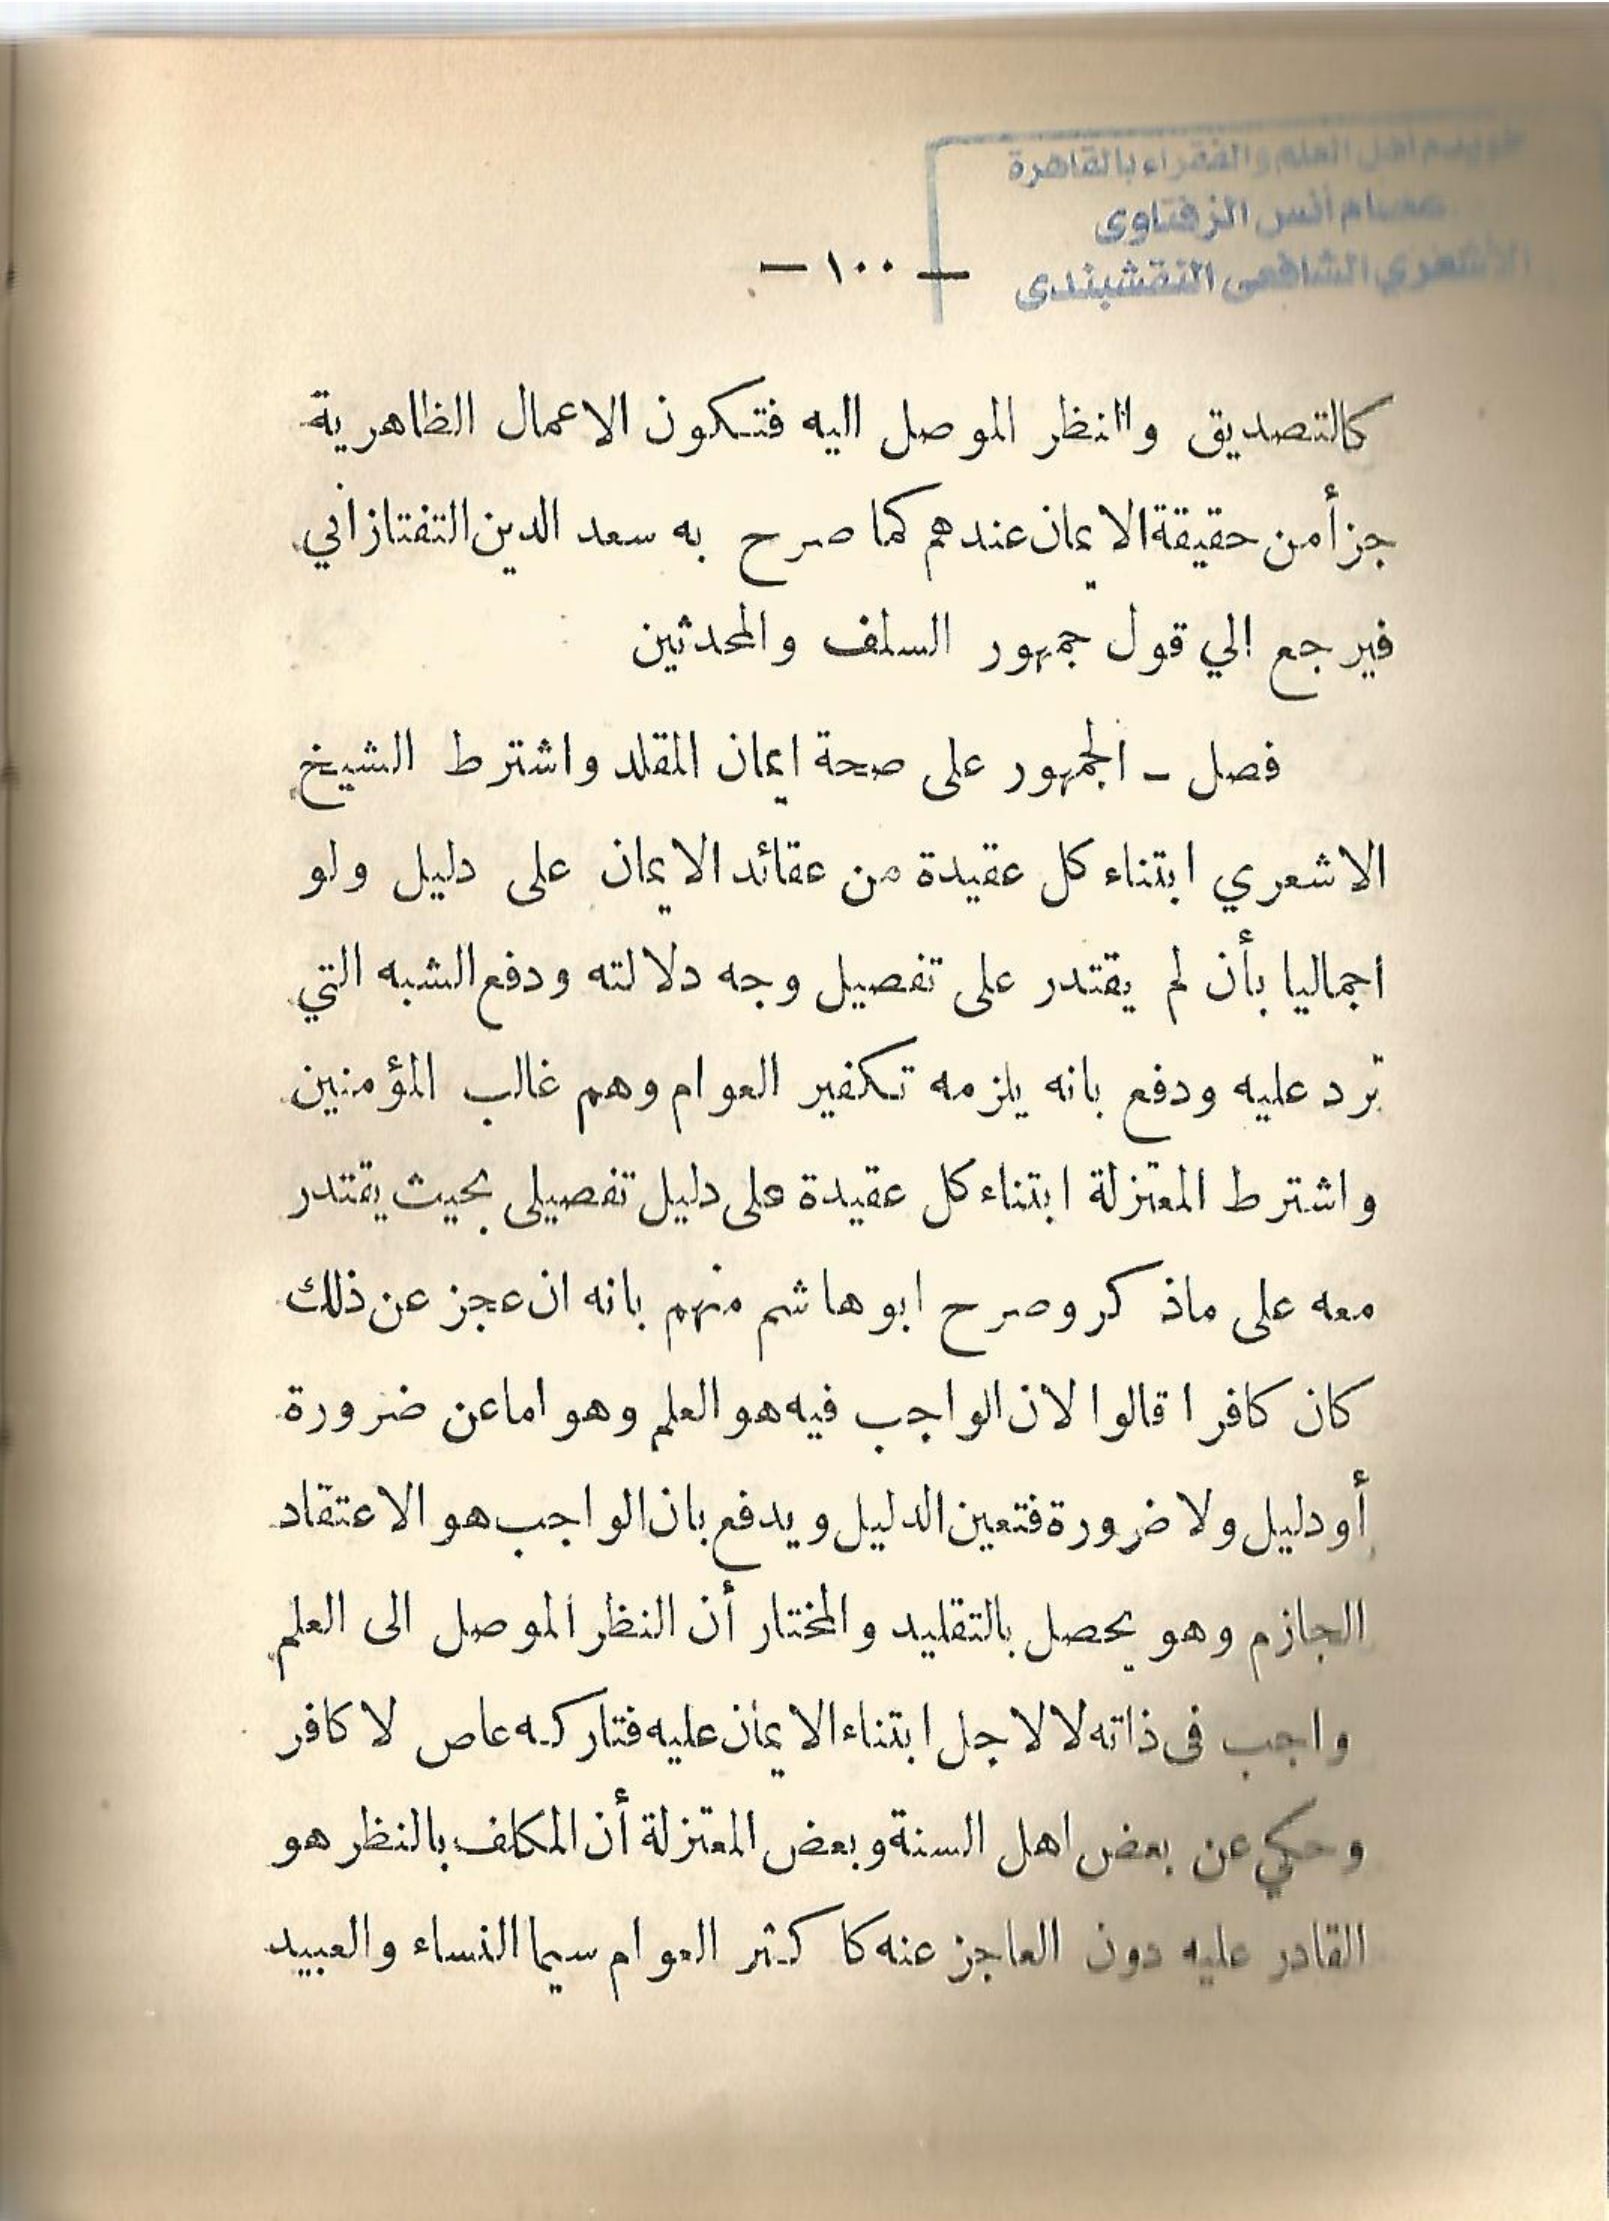 خويدم اهل العلم والفقراء بالقاهرة
عصام أنس الزفتاوى
الأشعري الشافعى النقشبندى
— ١٠٠ —
كالتصديق والنظر الموصل اليه فتكون الاعمال الظاهرية
جزأ من حقيقة الايمان عندهم كما صرح به سعد الدين التفتازاني
فيرجع الي قول جمهور السلف والمحدثين
فصل – الجمهور على صحة ايمان المقلد واشترط الشيخ
الاشعري ابتناء كل عقيدة من عقائد الايمان على دليل ولو
اجماليا بأن لم يقتدر على تفصيل وجه دلالته ودفع الشبه التي
ترد عليه ودفع بانه يلزمه تكفير العوام وهم غالب المؤمنين
واشترط المعتزلة ابتناء كل عقيدة على دليل تفصيلى بحيث يقتدر
معه على ماذكر وصرح ابوهاشم منهم بانه ان عجز عن ذلك
كان كافرا قالوا لان الواجب فيه هو العلم وهو اماعن ضرورة
أودليل ولا ضرورة فتعين الدليل ويدفع بان الواجب هو الاعتقاد
الجازم وهو يحصل بالتقليد والمختار أن النظر الموصل الى العلم
واجب فى ذاته لا لاجل ابتناء الايمان عليه فتاركه عاص لا كافر
وحكي عن بعض اهل السنة وبعض المعتزلة أن المكلف بالنظر هو
القادر عليه دون العاجز عنه كاكثر العوام سيما النساء والعبيد